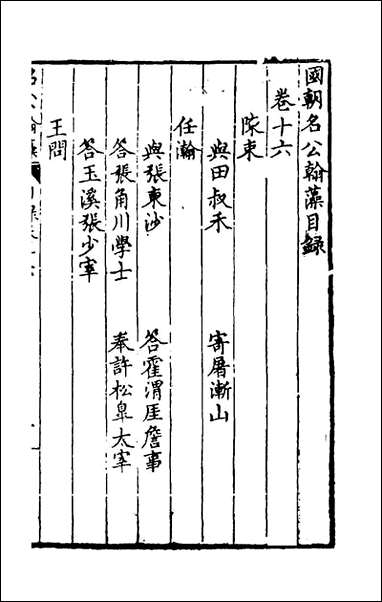 國朝名公翰藻目録
卷十六
陳束
與田叔禾 寄屠漸山
任瀚
與張東沙 答霍渭厓詹事
答張角川學士 奉許松皐太宰
答玉溪張少宰
王問